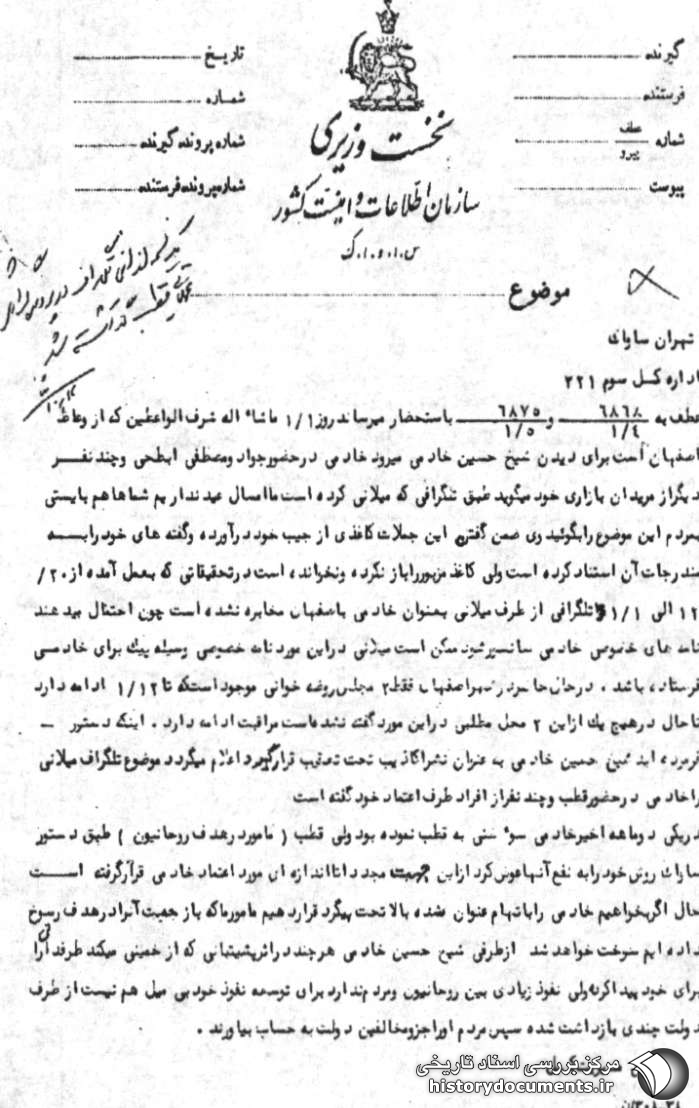 گیرنده
فرستنده
شماره عطف پیرو
پیوست
نخست وزیری
سازمان اطلاعات و امنیت کشور
س.ا.و.ا.ک
تاریخ
شماره
شماره پرونده گیرنده
شماره پرونده فرستنده
موضوع
تهران ساواک
اداره کل سوم ۲۲۱
عطف به ۶۸۶۸ ۱/۴ و ۶۸۷۵ ۱/۵ باستحضار میرساند روز ۱/۱ ماشاء اله شرف الواعظین که از وعاظ
اصفهان است برای دیدن شیخ حسین خادمی میرود خادمی در حضور جواد ومصطفی ابطحی وچند نفر
دیگر از مریدان بازاری خود میگوید طبق تلگرافی که میلانی کرده است ما امسال عید نداریم شماها هم بایستی
بمردم این موضوع رابگوئید وی ضمن گفتن این جملات کاغذی از جیب خود درآورده وگفته های خود رابه
مندرجات آن استناد کرده است ولی کاغذ مزبور راباز نکرده ونخوانده است در تحقیقاتی که بعمل آمده از ۲۰/
۱۲ الی ۱/۱ تلگرافی از طرف میلانی بعنوان خادمی باصفهان مخابره نشده است چون احتمال میدهند
نامه های خصوصی خادمی سانسور شود ممکن است میلانی در این مورد نامه خصوصی وسیله پیک برای خادمی
فرستاده باشد . در حال حاضر در شهر اصفهان فقط ۲ مجلس روضه خوانی موجود است که تا ۱/۱۲ ادامه دارد
تا حال در هیچ یک از این ۲ محل مطلبی در این مورد گفته نشده است مراقبت ادامه دارد . اینکه دستور -
فرموده اید شیخ حسین خادمی به عنوان نشر اکاذیب تحت تعقیب قرار گیرد اعلام میگردد موضوع تلگراف میلانی
را خادمی در حضور قطب وچند نفر از افراد طرف اعتماد خود گفته است
در یکی دو ماهه اخیر خادمی سوء ظنی به قطب نموده بود ولی قطب ( مامور در هدف روحانیون ) طبق دستور
ساواک روش خود رابه نفع آنها عوض کرد از این جهت مجددا تا اندازه ای مورد اعتماد خادمی قرار گرفته است
حال اگر بخواهیم خادمی را باتهام عنوان شده بالا تحت پیگرد قرار دهیم مامور ما که باز جمعیت آنرا در هدف رسوخ
داده ایم سوخت خواهد شد از طرفی شیخ حسین خادمی هر چند در اثر پشتیبانی که از خمینی میکند طرفدارانی
برای خود پیدا کرده ولی نفوذ زیادی بین روحانیون ومردم ندارد برای توسعه نفوذ خود بی میل هم نیست از طرف
دولت چندی بازداشت شده سپس مردم اورا جزو مخالفین دولت به حساب بیاورند .
مرکز بررسی اسناد تاریخی
historydocuments.ir